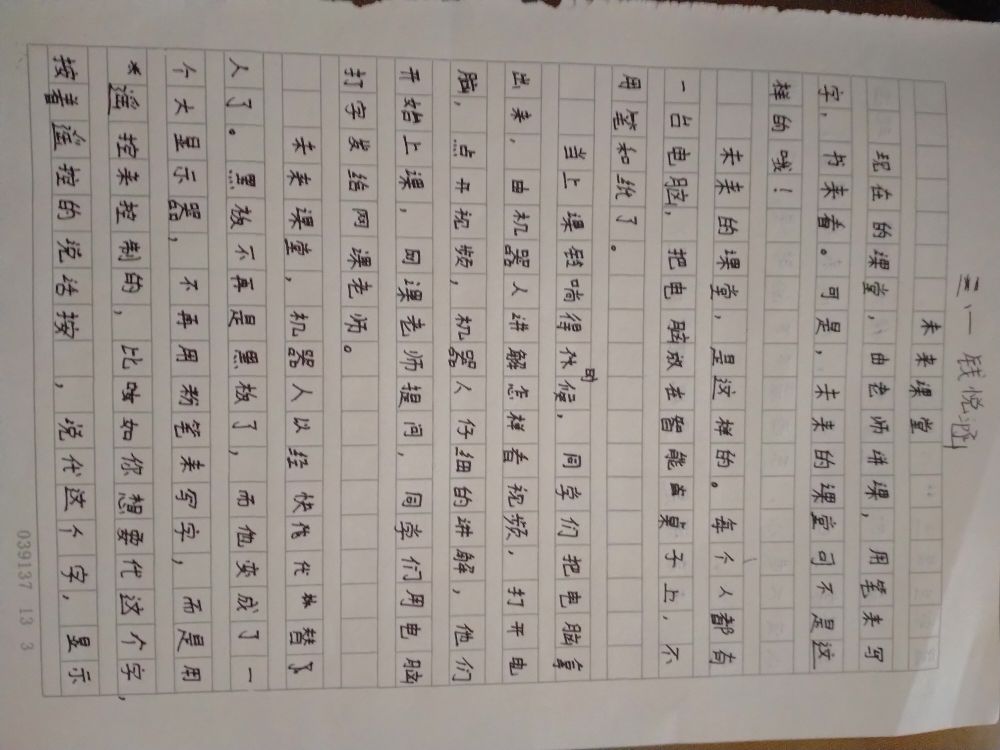 钱悦
未来课堂
现在的课堂，由老师讲课，用笔来写
字，书来看。可是，未来的课堂可不是这
样的哦！
未来的课堂，是这样的。每个人都有
一台电脑，把电脑放在智能桌子上，不
用笔和纸了。
当上课铃响得的候，同学们把电脑拿
出来，由机器人讲解怎样看视频，打开电
脑，点开视频，机器人仔细的讲解，他们
开始上课，网课老师提问，同学们用电脑
打字发给网课老师。
未来课堂，机器人以经快代替了
人了。黑板不再是黑板了，而他变成了一
个大显示器，不再用粉笔来写字，而是用
遥控来控制的，比如你想要代这个字，
按着遥控的说话按，说代这个字，显示
039137 13 3